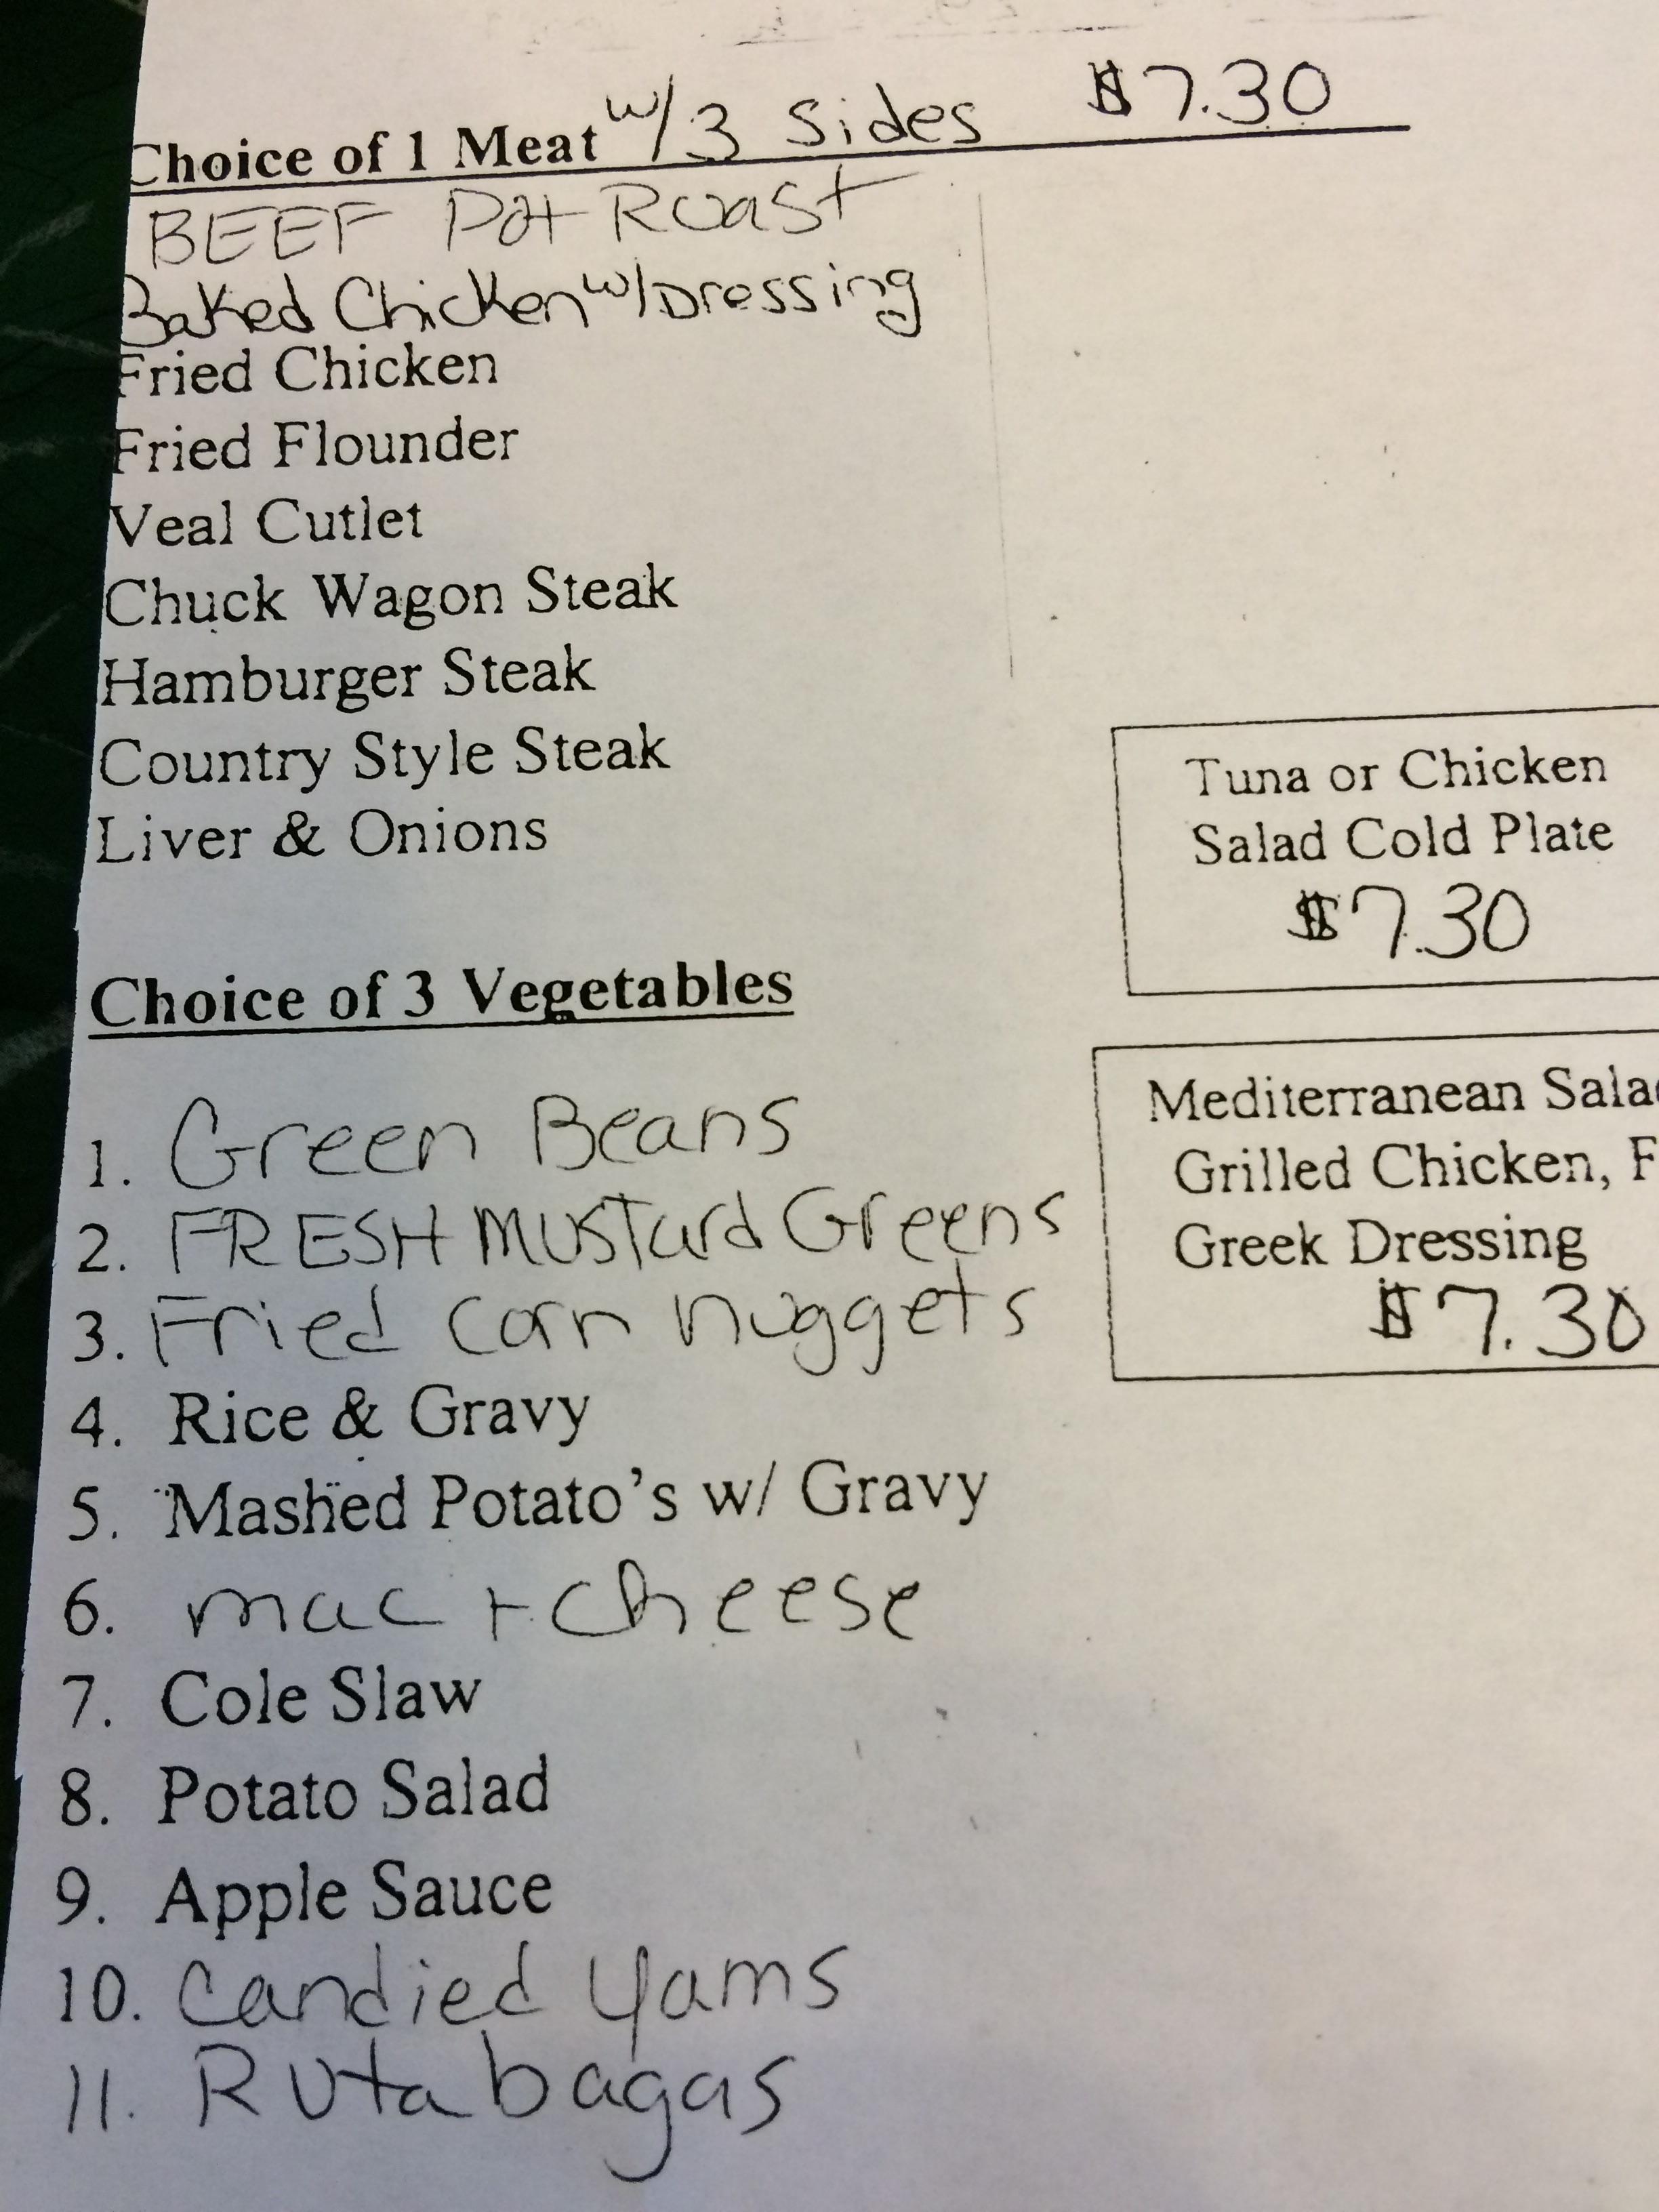 Choice of 1 Meat w/3 Sides $7.30
BEEF Pot Roast
Baked Chicken w/Dressing
Fried Chicken
Fried Flounder
Veal Cutlet
Chuck Wagon Steak
Hamburger Steak
Country Style Steak
Liver & Onions
Tuna or Chicken
Salad Cold Plate
$7.30
Choice of 3 Vegetables
1. Green Beans
2. FRESH MUSTard Greens
3. Fried Corn nuggets
4. Rice & Gravy
5. Mashed Potato's w/ Gravy
6. mac + Cheese
7. Cole Slaw
8. Potato Salad
9. Apple Sauce
10. Candied Yams
11. Rutabagas
Mediterranean
Grilled Chicken,
Greek Dressing
$7.30